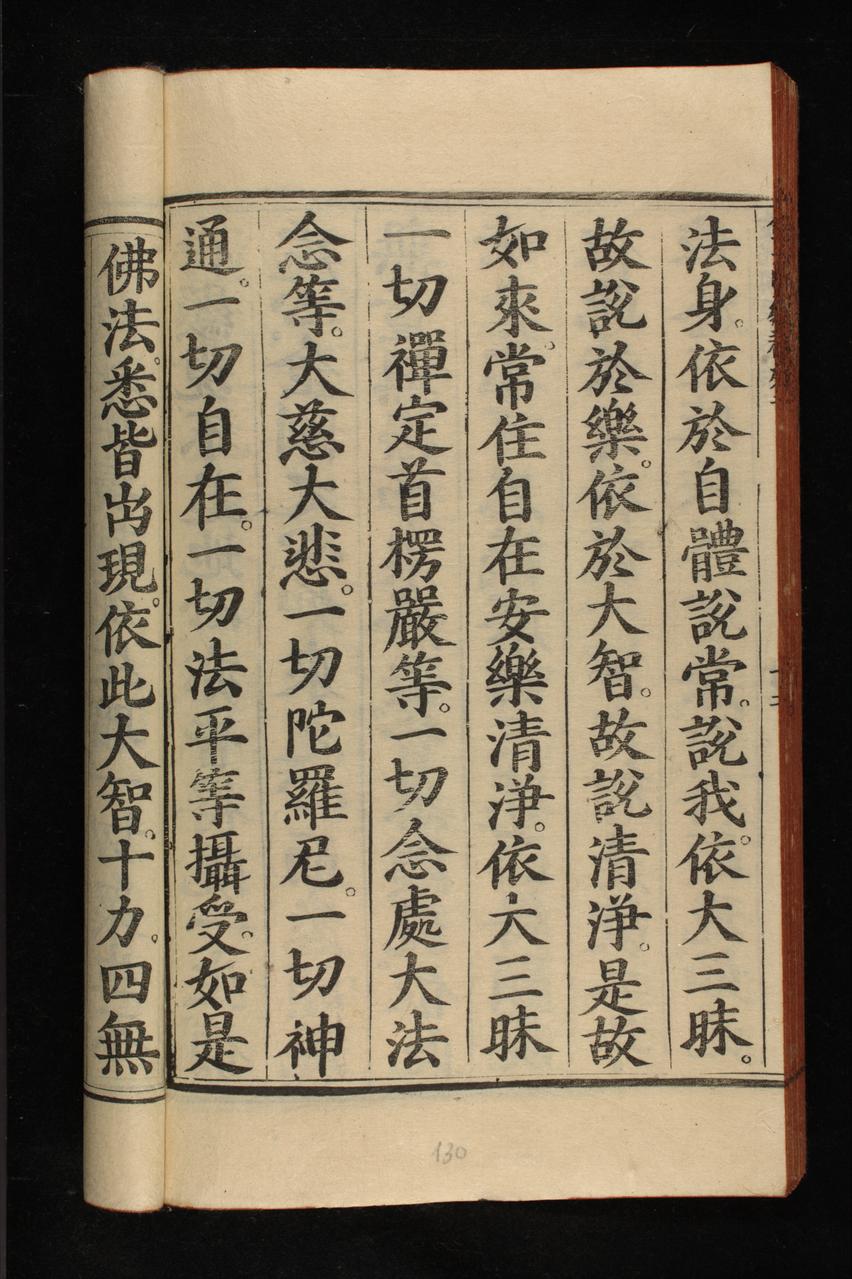 法身。依於自體說常。說我。依大三昧。
故說於樂。依於大智。故說清淨。是故
如來。常住自在安樂清淨。依大三昧
一切禪定首楞嚴等。一切念處大法
念等。大慈大悲。一切陀羅尼。一切神
通。一切自在。一切法平等攝受。如是
佛法。悉皆出現。依此大智。十力。四無
130